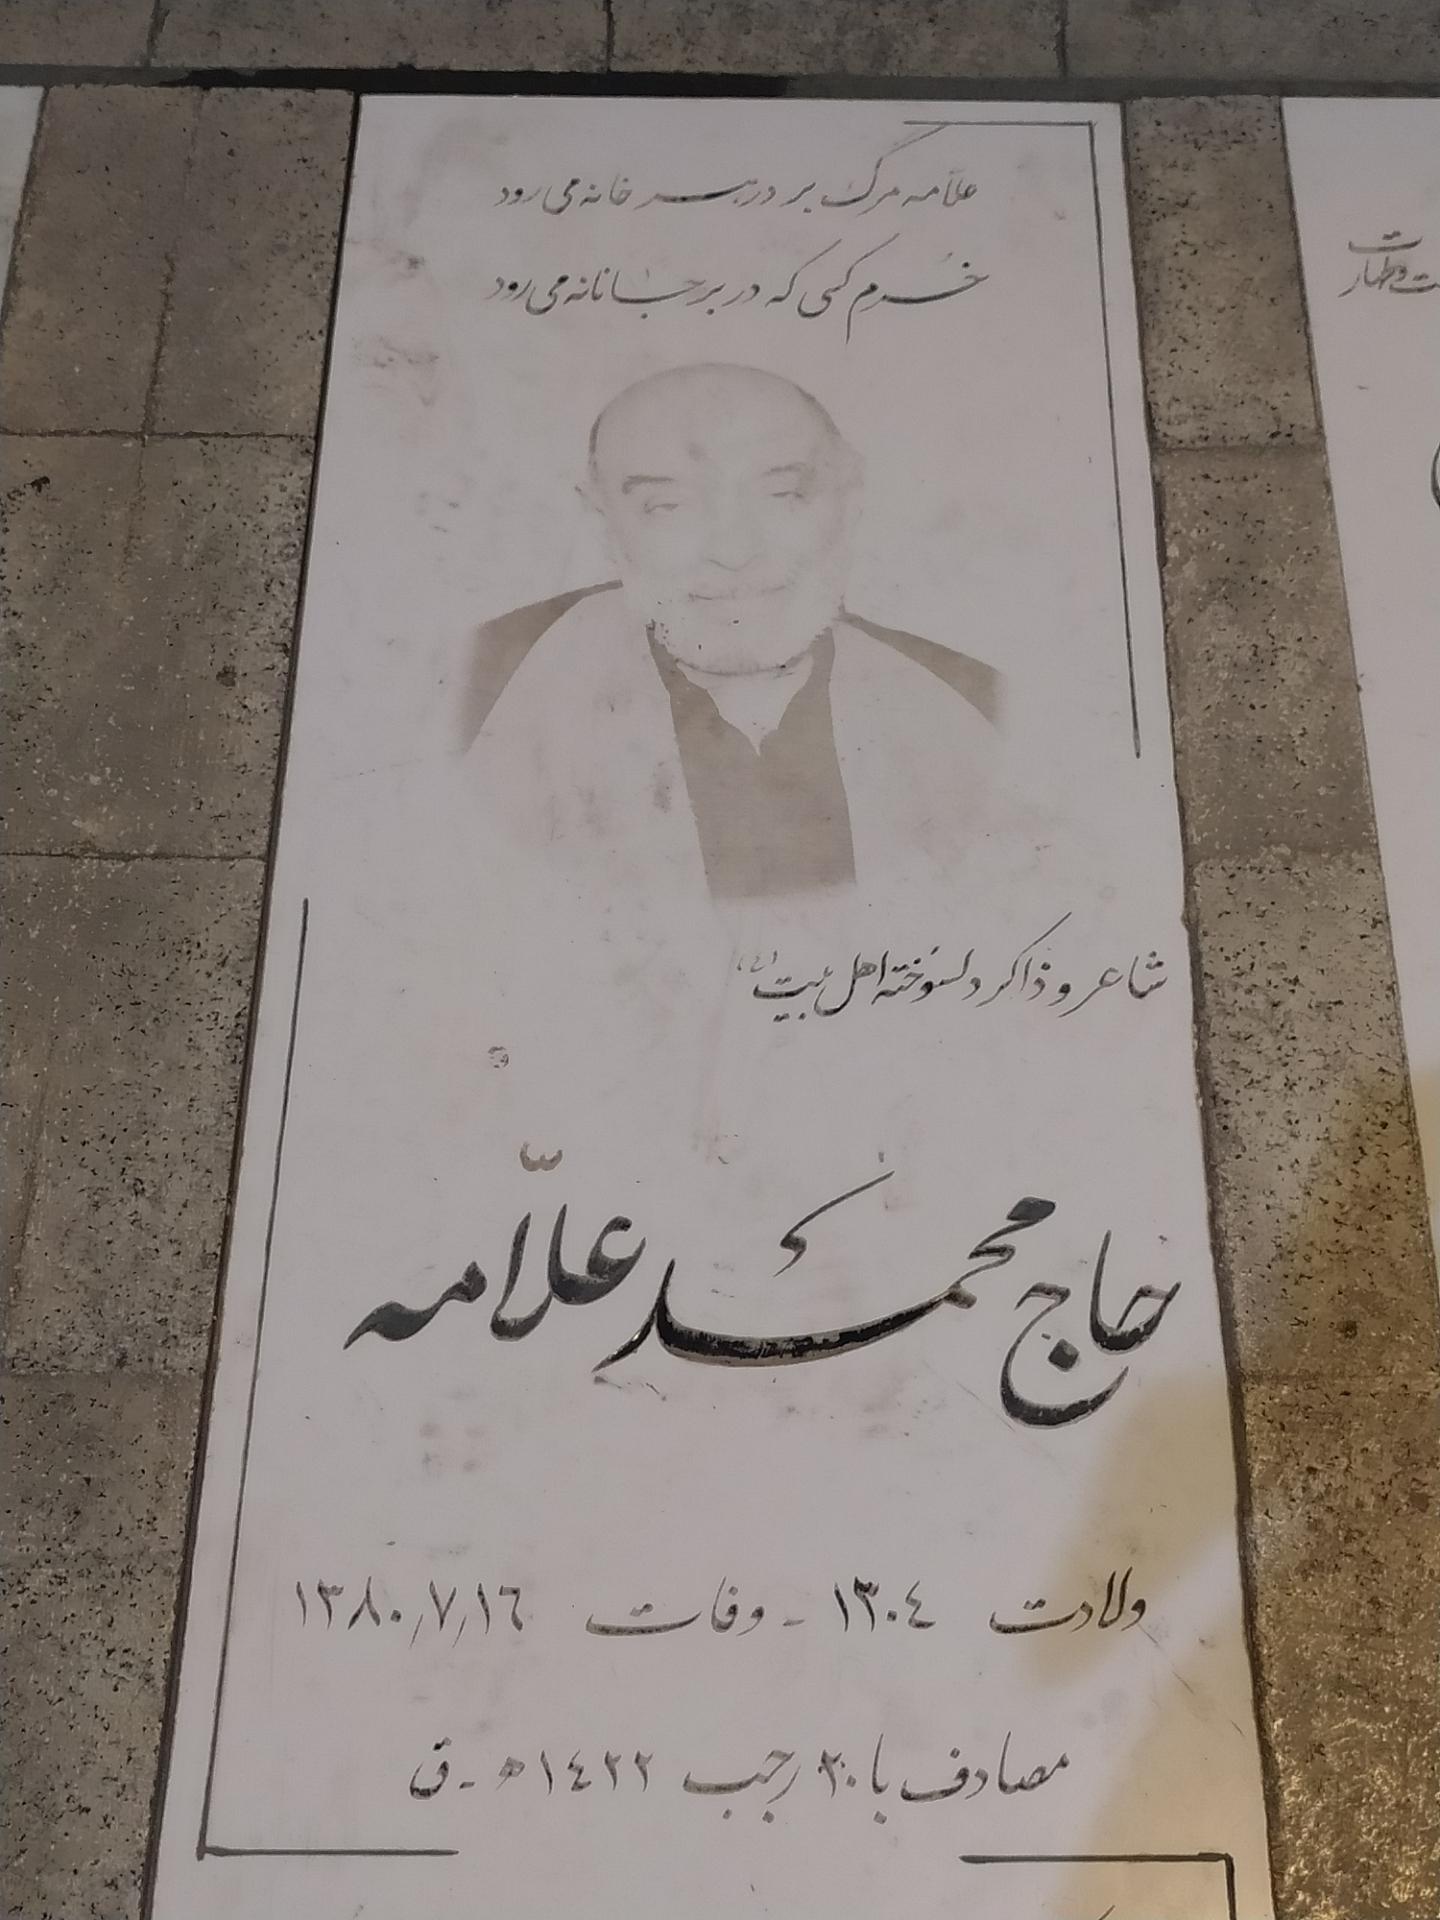 علّامه مرگ بر در هر خانه می‌رود
خُرم کسی که در بر جانانه می‌رود
شاعر و ذاکر دلسوخته اهل بیت (ع)
حاج محمد علّامه
ولادت ۱۳۰٤ - وفات ۱۳۸۰٫۷٫۱٦
مصادف با ۲۰ رجب ۱٤۲۲ ه‍ - ق
ت
ت و طهارت